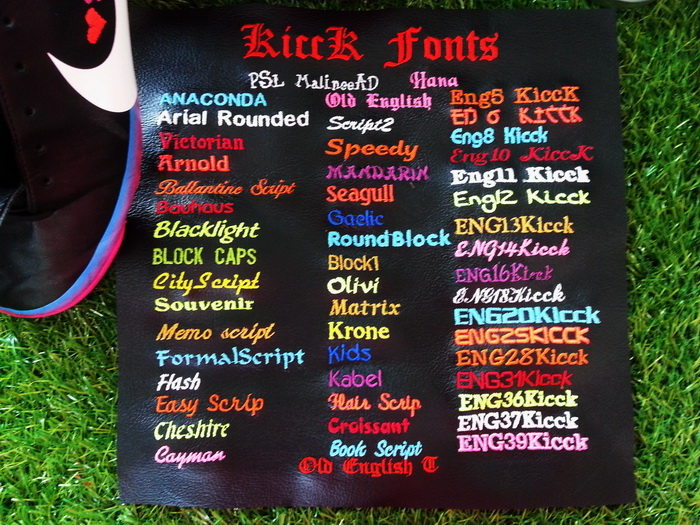 KiccK Fonts
PSL MalineeAD Hana
ANACONDA
Arial Rounded
Victorian
Arnold
Ballantine Script
Bauhaus
Blacklight
BLOCK CAPS
CityScript
Souvenir
Memo script
FormalScript
Flash
Easy Scrip
Cheshire
Cayman
Old English
Script2
Speedy
MANDARIN
Seagull
Gaelic
RoundBlock
Block1
Olivi
Matrix
Krone
Kids
Kabel
Flair Scrip
Croissant
Book Script
Old English T
Eng5 KiccK
KICCK
Eng8 Kicck
Eng10 KiccK
Eng11 Kicck
Eng12 Kicck
ENG13Kicck
ENG14Kicck
ENG16Kicck
ENG18Kicck
ENG20Kicck
ENG25KICCK
ENG28Kicck
ENG31Kicck
ENG36Kicck
ENG37Kicck
ENG39Kicck